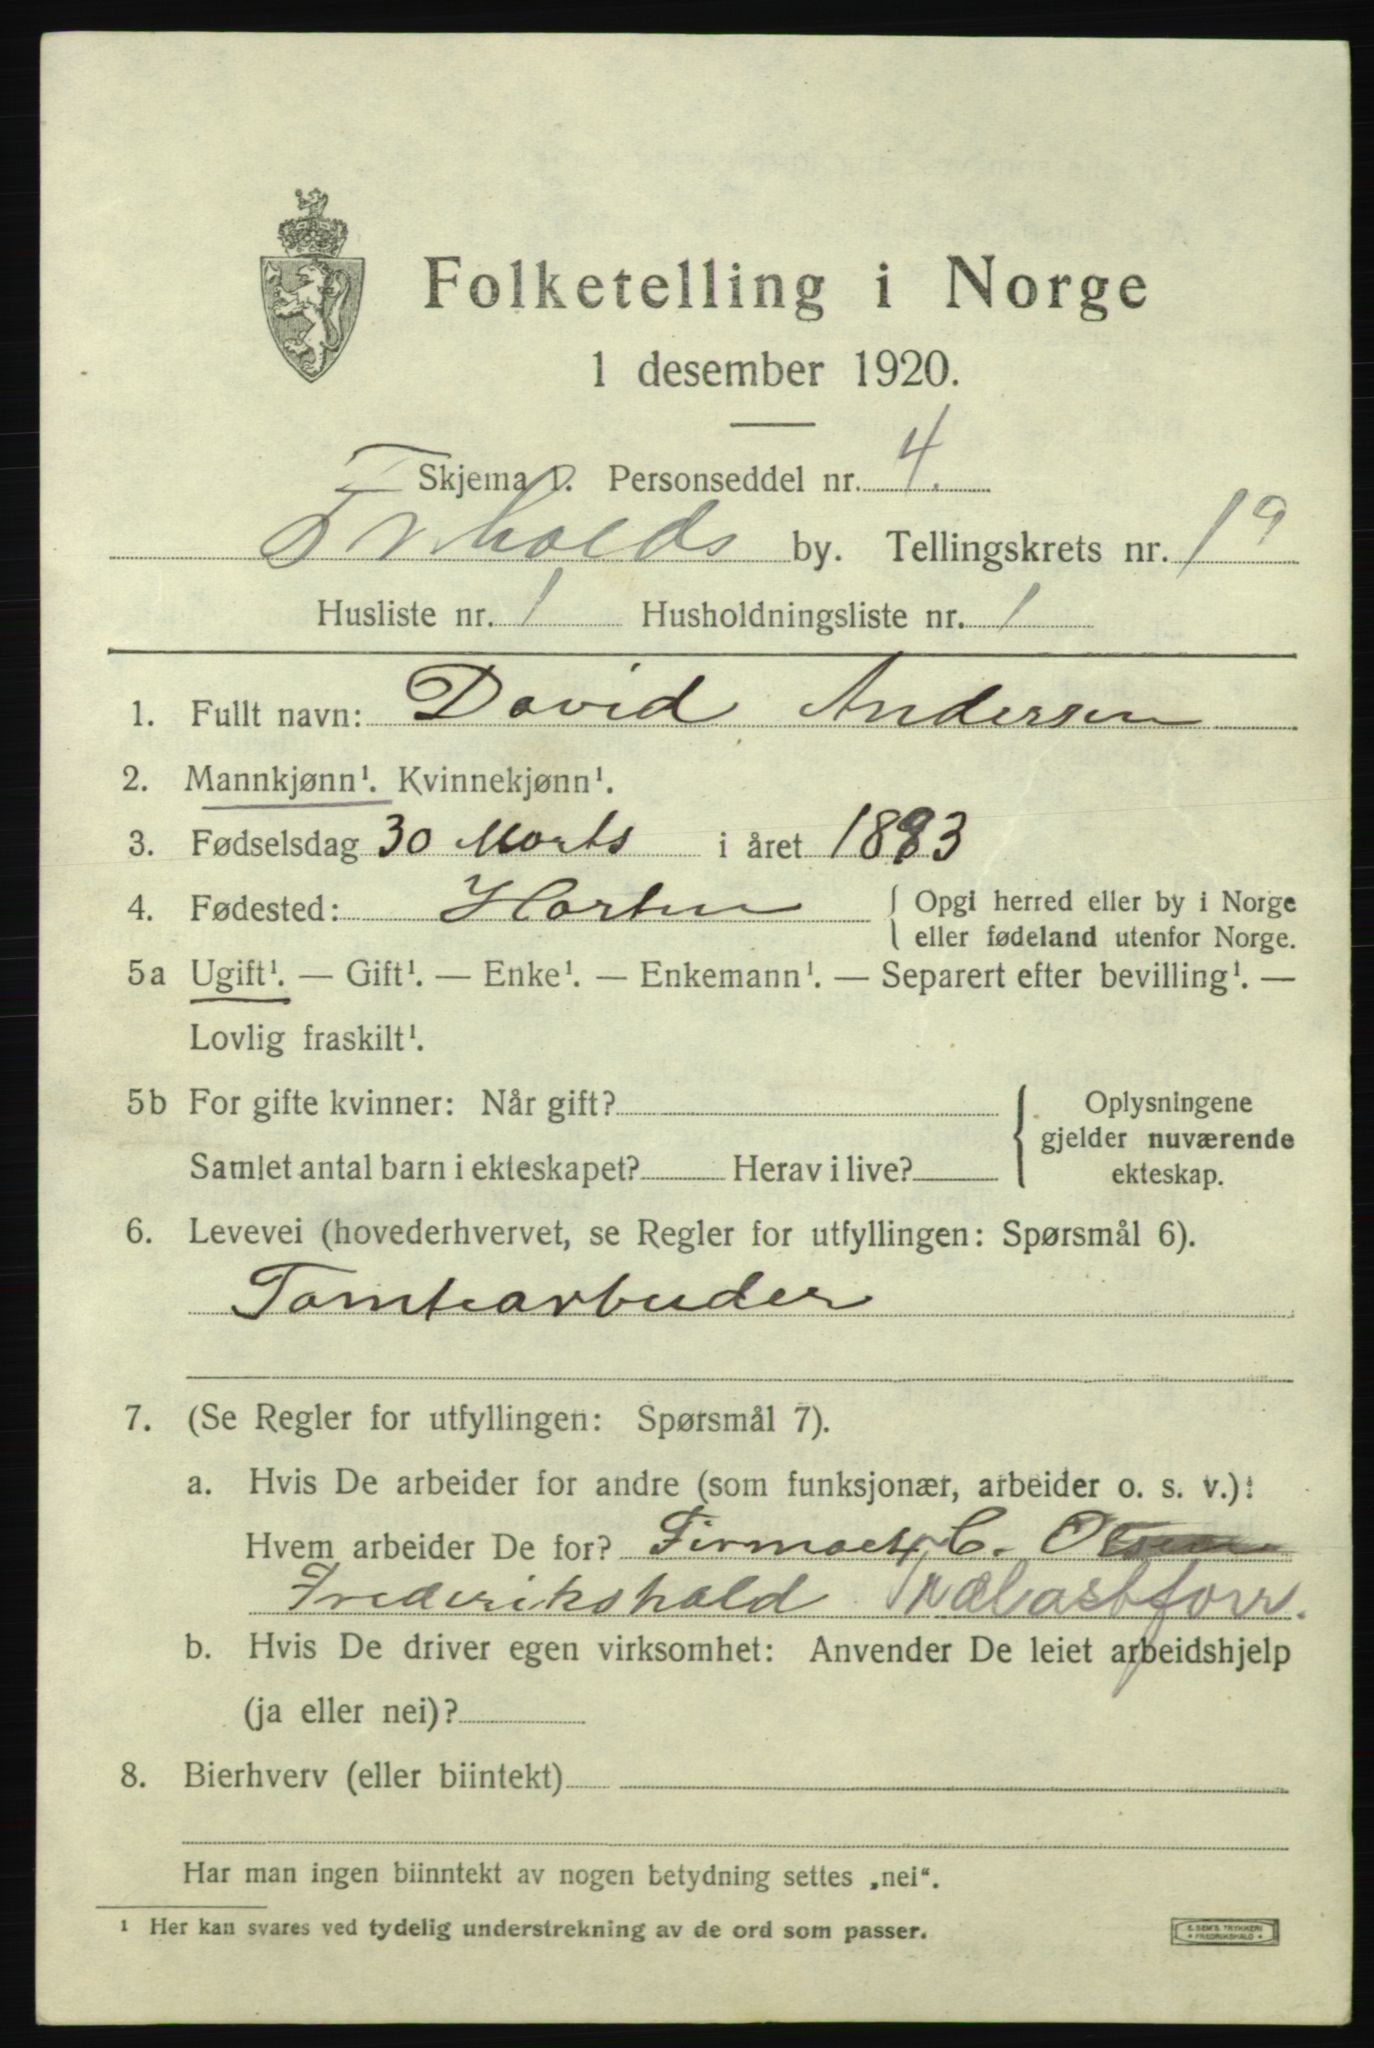 Folketelling i Norge
1 desember 1920.
Skjema 1. Personseddel nr. 4.
Frhalds by. Tellingskrets nr. 19
Husliste nr. 1 Husholdningsliste nr. 1
1. Fullt navn: David Andersen
2. Mannkjønn¹. Kvinnekjønn¹.
3. Fødselsdag 30 Marts i året 1883
4. Fødested: Horten { Opgi herred eller by i Norge
eller fødeland utenfor Norge.
5a Ugift¹. — Gift¹. — Enke¹. — Enkemann¹. — Separert efter bevilling¹. —
Lovlig fraskilt¹.
5b For gifte kvinner: Når gift? { Oplysningene
gjelder nuværende
Samlet antal barn i ekteskapet? Herav i live? ekteskap.
6. Levevei (hovederhvervet, se Regler for utfyllingen: Spørsmål 6).
Tomtearbeider
7. (Se Regler for utfyllingen: Spørsmål 7).
a. Hvis De arbeider for andre (som funksjonær, arbeider o. s. v.):
Hvem arbeider De for? Firmaet C. Olsen
Frederikshald Trælastforr.
b. Hvis De driver egen virksomhet: Anvender De leiet arbeidshjelp
(ja eller nei)?
8. Bierhverv (eller biintekt)
Har man ingen biinntekt av nogen betydning settes „nei“.
¹ Her kan svares ved tydelig understrekning av de ord som passer.
E. SEM'S TRYKKERI
FREDRIKSHALD